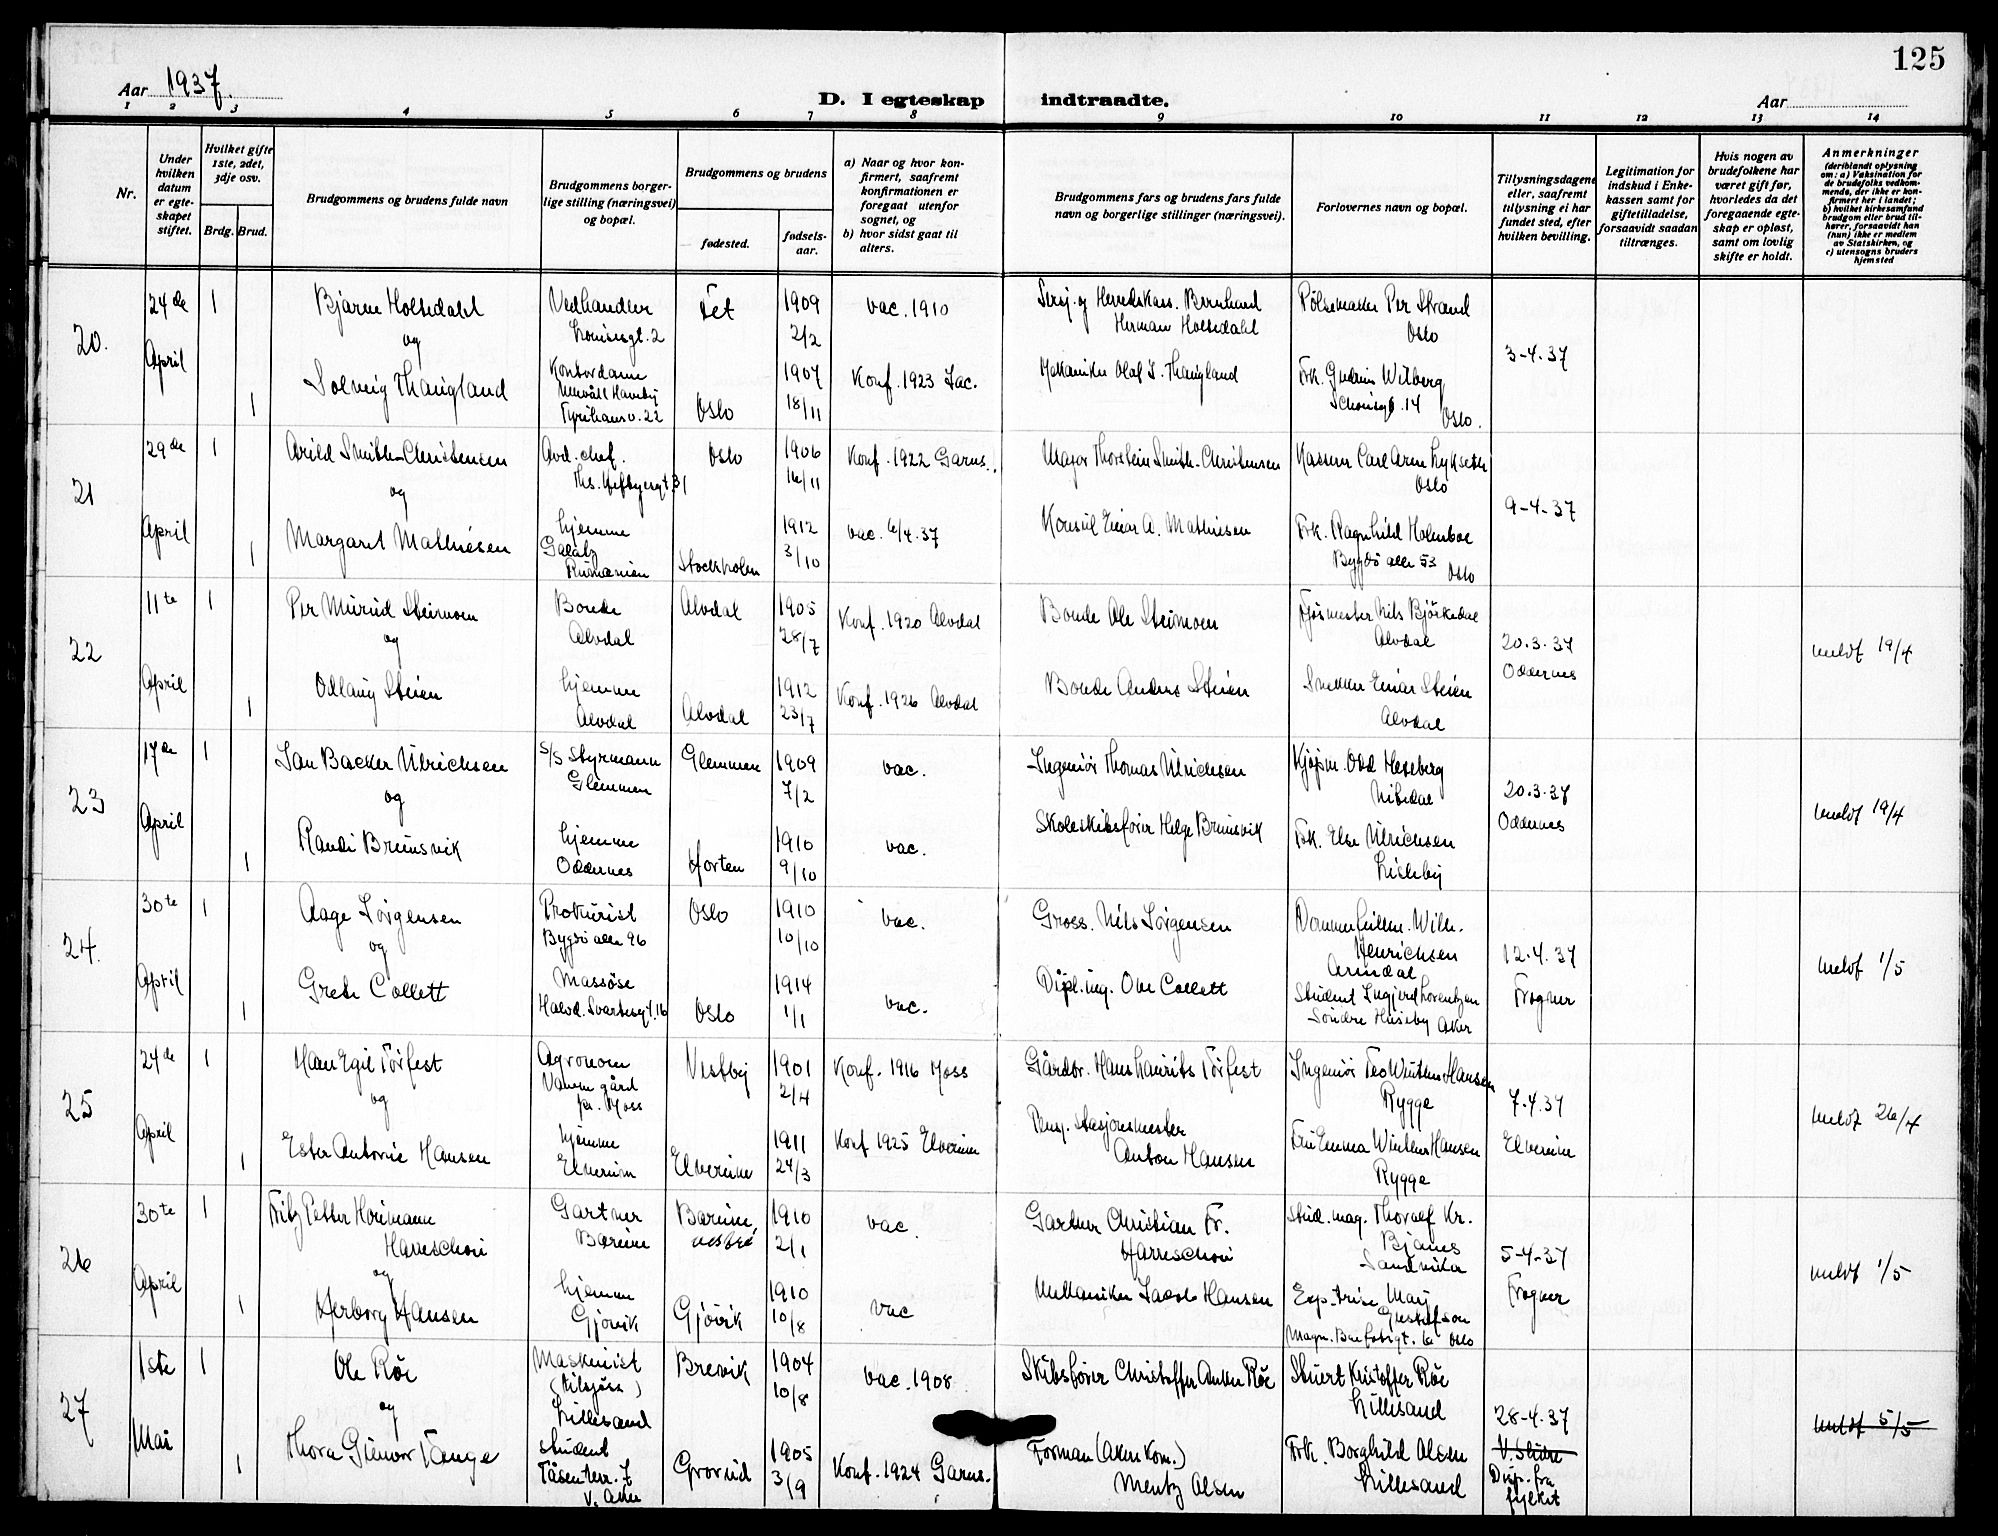 125
Aar 1937.
D. I egteskap indtraadte.
Aar
1 2 3 4 5 6 7 8 9 10 11 12 13 14
Nr.
Under hvilken datum er egteskapet stiftet.
Hvilket gifte 1ste, 2det, 3dje osv.
Brdg. Brud.
Brudgommens og brudens fulde navn
Brudgommens borgerlige stilling (næringsvei) og bopæl.
Brudgommens og brudens
fødested.
fødselsaar.
a) Naar og hvor konfirmert, saafremt konfirmationen er foregaat utenfor sognet, og
b) hvor sidst gaat til alters.
Brudgommens fars og brudens fars fulde navn og borgerlige stillinger (næringsvei).
Forlovernes navn og bopæl.
Tillysningsdagene eller, saafremt tillysning ei har fundet sted, efter hvilken bevilling.
Legitimation for indskud i Enkekassen samt for giftetilladelse, forsaavidt saadan tiltrænges.
Hvis nogen av brudefolkene har været gift før, hvorledes da det foregaaende egteskap er opløst, samt om lovlig skifte er holdt.
Anmerkninger
(deriblandt oplysning om: a) Vaksination for de brudefolks vedkommende, der ikke er konfirmert her i landet; b) hvilket kirkesamfund brudgom eller brud tilhører, forsaavidt han (hun) ikke er medlem av Statskirken, og c) utensogns bruders hjemsted
20.
24de April
1
Bjarne Holtedahl
og
1
Solveig Thaugland
Vedhandler
Kontordame
Tyrihansv. 22
Fet
Oslo
1909
2/2
1907
18/11
vac. 1910
Konf. 1923 Jac.
Herman Holtedahl
Mekaniker Olaf S. Thaugland
Pølsemaker Per Strand
Oslo
Frk. Gudrun Wilberg
Oslo.
3-4-37
21
29de April
1
Arild Smith-Christensen
og
1
Margaret Mathiesen
Avd. chef.
Ths. Heftyesgt. 31
hjemme
Galatz
Rumænien
Oslo
Stockholm
1906
16/11
1912
3/10
Konf. 1922 Garns.
vac. 6/4.37
Major Thorstein Smith-Christensen
Konsul Einar A. Mathiesen
Oslo
Frk. Ragnhild Holmboe
Bygdö alle 53
Oslo
9-4-37
22
11te April
1
Per Murud Steimoen
og
1
Odlaug Steien
Bonde
Alvdal
hjemme
Alvdal
Alvdal
Alvdal
1905
28/7
1912
23/7
Konf. 1920 Alvdal
Konf. 1926 Alvdal
Bonde Ole Steimoen
Bonde Anders Steien
Fjösmester Nils Björkedal
Alvdal
Snekker Einar Steien
Alvdal
20.3.37
Oddernes
meldt 19/4
23
17de April
1
Jan Backer Ulrichsen
og
1
Randi Brunsvik
S/S Styrmann
Glemmen
hjemme
Oddernes
Glemmen
Horten
1909
7/2
1910
9/10
vac.
vac.
Ingeniör Thomas Ulrichsen
Skoleskibsförer Helge Brunsvik
Kjöpm. Odd Heseberg
Frk. Else Ulrichsen
Lisleby
20.3.37
Oddernes
meldt 19/4
24.
30te April
1
Aage Jörgensen
og
1
Grete Collett
Prokurist
Bygdö alle 96
Massöse
Halvd. Svartesgt. 16
Oslo
Oslo
1910
10/10
1914
1/1
vac.
vac.
Gross. Nils Jörgensen
Dipl.ing. Ove Collett
Dommerfullm. Wilh.
Henrichsen
Arendal
Student Ingjerd Lorentzen
Söndre Huseby Aker
12.4.37
Frogner
meldt 1/5
25
24de April
1
Hans Egil Törfest
og
1
Ester Antonie Hansen
Agronom
Vanem gård
pr. Moss
hjemme
Elverum
Vestby
Elverum
1901
2/4
1911
24/3
Konf. 1916 Moss
Konf 1925 Elverum
Gårdbr. Hans Laurits Törfest
Pensj. stasjonsmester
Anton Hansen
Rygge
Fru Emma Winther Hansen
Rygge
7.4.37
Elverum
meldt 26/4
26
30te April
1
Fritz Petter Horimann
Harreschou
og
1
Herborg Hansen
Gartner
Bærum
hjemme
Gjövik
Bærum,
Gjövik
1910
2/1
1910
10/8
vac.
vac
Gartner Christian Fr.
Harreschou
Mekaniker Jacob Hansen
Stud. mag. Thoralf Kr.
Bjanes
Sandvika
Exp.trise Mary
Gustafson
Magn. Barfotsgt. 6 Oslo
5-4-37
Frogner
meldt 1/5
27
1ste Mai
1
Ole Röe
og
1
Thora Gunvor Tange
Maskinist
(tilsjös)
Lillesand
student
Tåsenterr. 7
V. Aker
Brevik
Grorud
1904
10/8
1905
3/9
vac. 1908
Konf. 1924 Garns.
Skibsförer Christoffer Anker Röe
Forman (Akers Kom.)
Mentz Olsen
Stuert Kristoffer Röe
Lillesand
Frk. Borghild Olsen
Lillesand
28-4-37
V. Slidre
Disp. fra
fylket
meldt 5/5